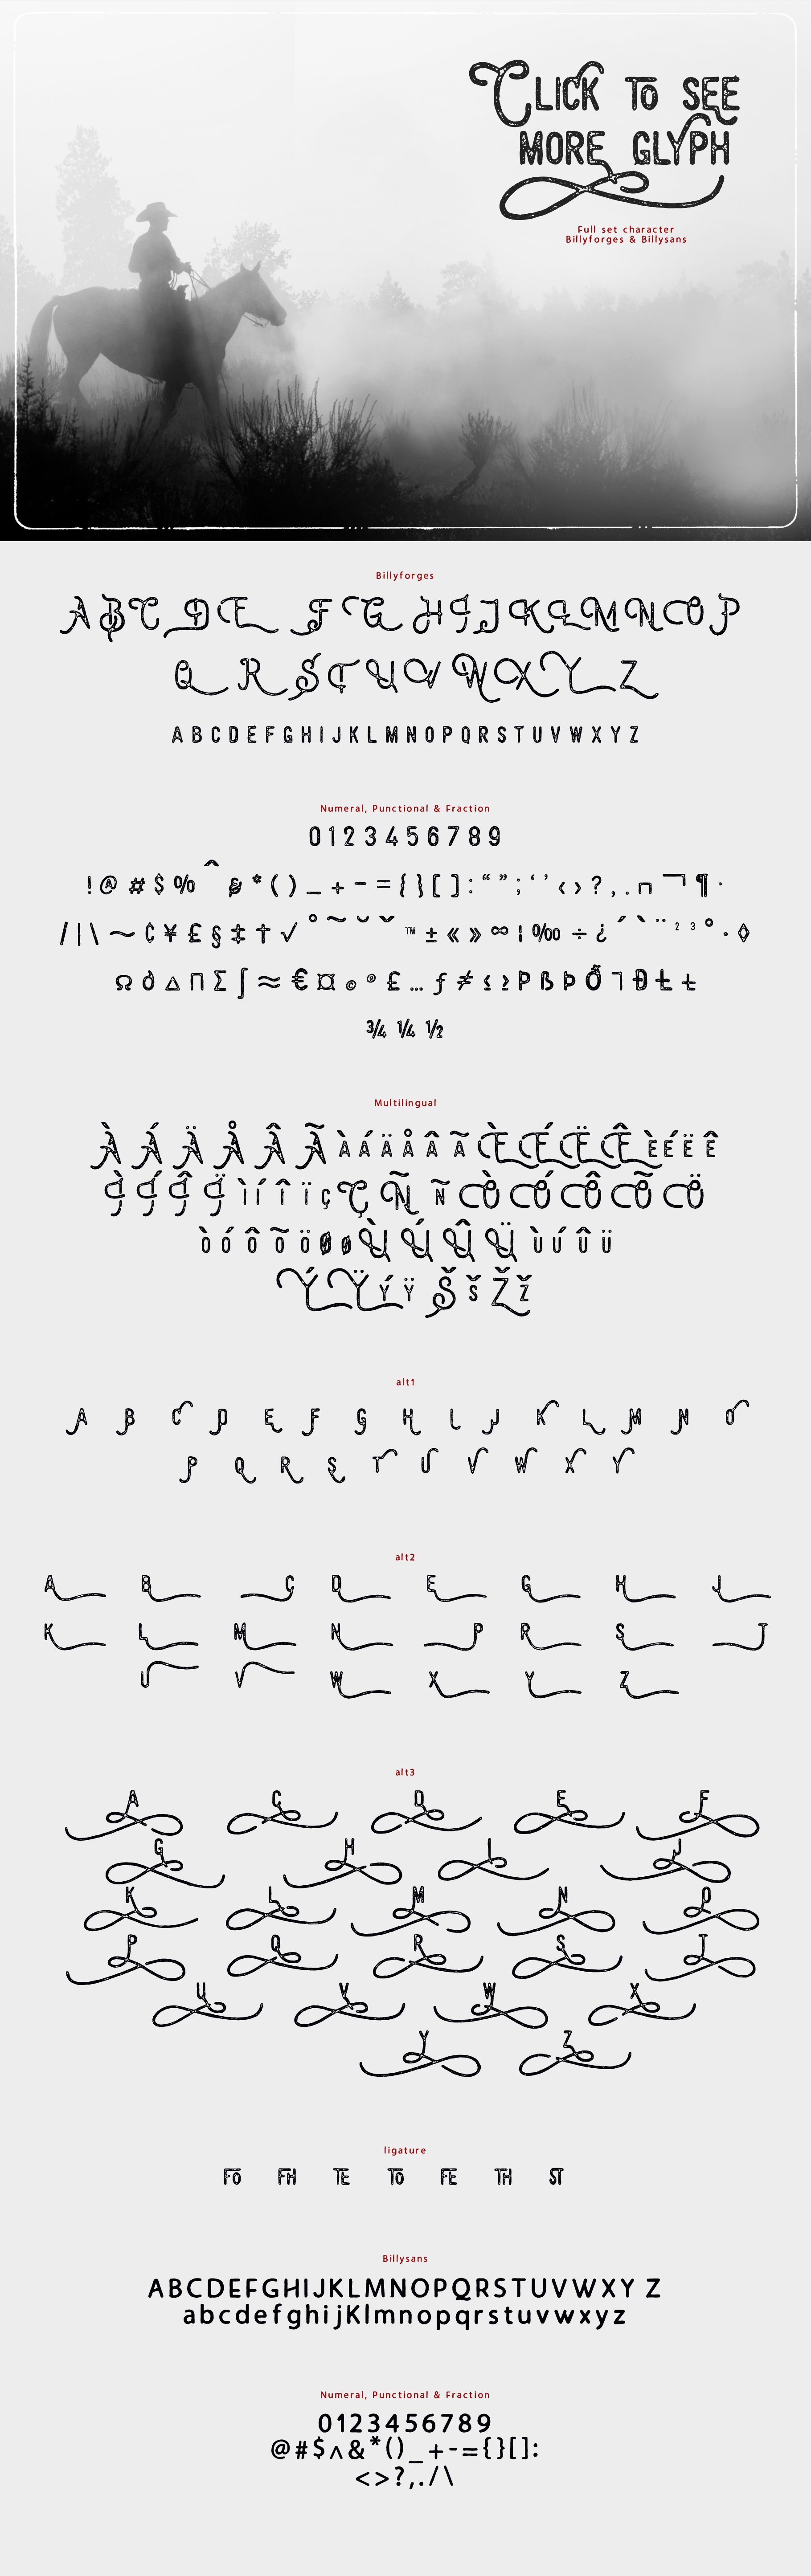 CLICK TO SEE
MORE GLYPH
Full set character
Billyforges & Billysans
Billyforges
A B C D E F G H I J K L M N O P
Q R S T U V W X Y Z
A B C D E F G H I J K L M N O P Q R S T U V W X Y Z
Numeral, Punctional & Fraction
0 1 2 3 4 5 6 7 8 9
! @ # $ % ^ & * ( ) _ + - = { } [ ] : “ ” ; ‘ ’ ‹ › ? , . ∩ ¬ ¶ ·
/ | \ ~ ¢ ¥ £ § ‡ † √ ° ~ ˘ ˇ ™ ± « » ∞ ¦ ‰ ÷ ¿ ´ ` ¨ ² ³ ° · ◊
Ω ∂ ∆ ∏ ∑ ∫ ≈ € ¤ © ® £ … ƒ ≠ ≤ ≥ Þ ß Þ Õ ¬ Đ Ł ł
¾ ¼ ½
Multilingual
À Á Ä Å Â Ã À Á Ä Å Â Ã È É Ë Ê È É Ë Ê
Ì Í Î Ï Ì Í Î Ï Ç Ç Ñ Ñ Ò Ó Ô Õ Ö
Ò Ó Ô Õ Ö Ø Ø Ù Ú Û Ü Ù Ú Û Ü
Ý Ÿ Ý Ÿ Š Š Ž Ž
alt1
A B C D E F G H I J K L M N O
P Q R S T U V W X Y
alt2
A B C D E G H J
K L M N P R S T
U V W X Y Z
alt3
A C D E F
G H I J
K L M N O
P Q R S T
U V W X
Y Z
ligature
FO FH TE TO FE TH ST
Billysans
ABCDEFGHIJKLMNOPQRSTUVWXY Z
abcdefghijKlmnopqrstuvwxyz
Numeral, Punctional & Fraction
0123456789
@#$^&*()_+-={}[]:
<>?,./\